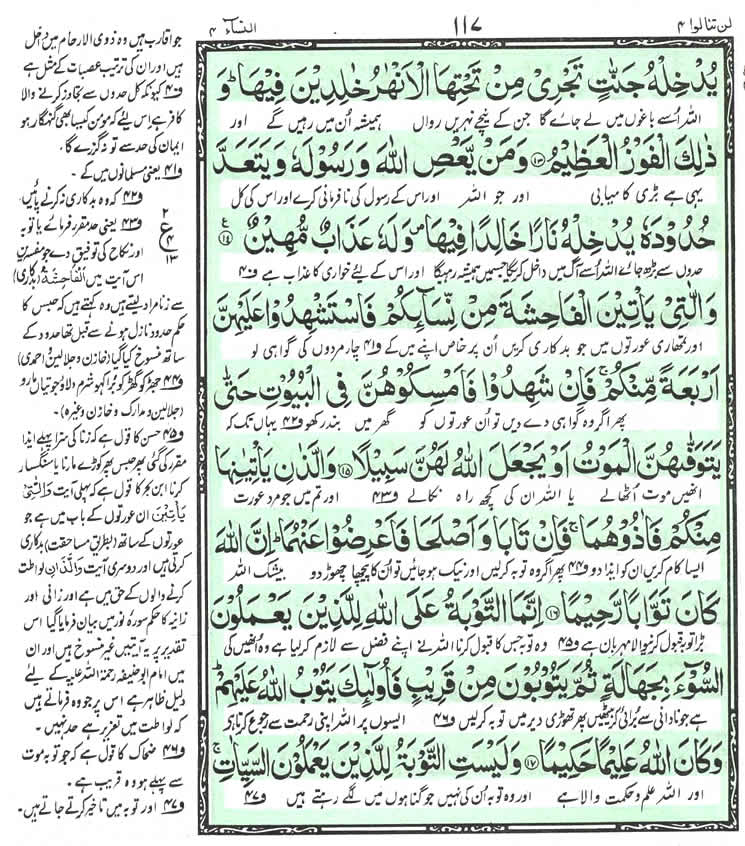 لن تنالوا ۴
۱۱۷
النساء ۴
يُدْخِلْهُ جَنّٰتٍ تَجْرِىْ مِنْ تَحْتِهَا الْاَنْهٰرُ خٰلِدِيْنَ فِيْهَا ؕ وَ
اللہ اُسے باغوں میں لے جائے گا جن کے نیچے نہریں رواں ہمیشہ اُن میں رہیں گے اور
ذٰلِكَ الْفَوْزُ الْعَظِيْمُ ﴿۱۳﴾ وَمَنْ يَّعْصِ اللّٰهَ وَرَسُوْلَهٗ وَيَتَعَدَّ
یہی ہے بڑی کامیابی اور جو اللہ اور اس کے رسول کی نافرمانی کرے اور اس کی کل
حُدُوْدَهٗ يُدْخِلْهُ نَارًا خَالِدًا فِيْهَا ۪ وَلَهٗ عَذَابٌ مُّهِيْنٌ ﴿۱۴﴾
حدوں سے بڑھ جائے اللہ اُسے آگ میں داخل کرے گا جس میں ہمیشہ رہے گا اور اس کے لئے خواری کا عذاب ہے ف۴۰
وَالّٰتِىْ يَاْتِيْنَ الْفَاحِشَةَ مِنْ نِّسَآئِكُمْ فَاسْتَشْهِدُوْا عَلَيْهِنَّ
اور تمہاری عورتوں میں جو بدکاری کریں اُن پر خاص اپنے میں کے ف۴۱ چار مردوں کی گواہی لو
اَرْبَعَةً مِّنْكُمْ ۚ فَاِنْ شَهِدُوْا فَاَمْسِكُوْهُنَّ فِى الْبُيُوْتِ حَتّٰى
پھر اگر وہ گواہی دے دیں تو اُن عورتوں کو گھر میں بند رکھو ف۴۲ یہاں تک کہ
يَتَوَفّٰٮهُنَّ الْمَوْتُ اَوْ يَجْعَلَ اللّٰهُ لَهُنَّ سَبِيْلًا ﴿۱۵﴾ وَالَّذٰنِ يَاْتِيٰنِهَا
انھیں موت اٹھالے یا اللہ ان کی کچھ راہ نکالے ف۴۳ اور تم میں جو مرد عورت
مِنْكُمْ فَاٰذُوْهُمَا ۚ فَاِنْ تَابَا وَاَصْلَحَا فَاَعْرِضُوْا عَنْهُمَا ؕ اِنَّ اللّٰهَ
ایسا کام کریں ان کو ایذا دو ف۴۴ پھر اگر وہ توبہ کرلیں اور نیک ہوجائیں تو اُن کا پیچھا چھوڑ دو بیشک اللہ
كَانَ تَوَّابًا رَّحِيْمًا ﴿۱۶﴾ اِنَّمَا التَّوْبَةُ عَلَى اللّٰهِ لِلَّذِيْنَ يَعْمَلُوْنَ
بڑا توبہ قبول کرنیوالا مہربان ہے ف۴۵ وہ توبہ جس کا قبول کرنا اللہ نے اپنے فضل سے لازم کرلیا ہے وہ انھیں کی
السُّوْٓءَ بِجَهَالَةٍ ثُمَّ يَتُوْبُوْنَ مِنْ قَرِيْبٍ فَاُولٰٓئِكَ يَتُوْبُ اللّٰهُ عَلَيْهِمْ ؕ
ہے جو نادانی سے بُرائی کر بیٹھیں پھر تھوڑی دیر میں توبہ کرلیں ف۴۶ ایسوں پر اللہ اپنی رحمت سے رجوع کرتا ہے
وَكَانَ اللّٰهُ عَلِيْمًا حَكِيْمًا ﴿۱۷﴾ وَلَيْسَتِ التَّوْبَةُ لِلَّذِيْنَ يَعْمَلُوْنَ السَّيِّاٰتِ ۚ
اور اللہ علم و حکمت والا ہے اور وہ توبہ اُن کی نہیں جو گناہوں میں لگے رہتے ہیں ف۴۷
جو اقارب ہیں وہ ذوی الارحام میں داخل
ہیں اور ان کی ترتیب عصبات کے مثل ہے
ف۴۰ کیونکہ کل حدوں سے تجاوز کرنے والا
کافر ہے اس لئے کہ مومن کیسا بھی گنہگار ہو
ایمان کی حد سے تو نہ گزرے گا۔
ف۴۱ یعنی مسلمانوں میں کے۔
ف۴۲ کہ وہ بدکاری نہ کرنے پائیں۔
ف۴۳ یعنی حد مقرر فرمائے یا توبہ
اور نکاح کی توفیق دے جو مفسرین
اس آیت میں اَلْفَاحِشَةَ (بدکاری)
سے زنا مراد لیتے ہیں وہ کہتے ہیں کہ حبس کا
حکم حدود نازل ہونے سے قبل تھا حدود کے
ساتھ منسوخ کیا گیا (خازن و جلالین و احمدی)
ف۴۴ جھڑکو گھڑکو برا کہو شرم دلاؤ جوتیاں مارو
(جلالین و مدارک و خازن وغیرہ)۔
ف۴۵ حسن کا قول ہے کہ زنا کی سزا پہلے ایذا
مقرر کی گئی پھر حبس پھر کوڑے مارنا یا سنگسار
کرنا ابن بحر کا قول ہے کہ پہلی آیت وَالّٰتِىْ
يَاْتِيْنَ ان عورتوں کے باب میں ہے جو
عورتوں کے ساتھ (بطریق مساحقت) بدکاری
کرتی ہیں اور دوسری آیت وَالَّذٰنِ لواطت
کرنے والوں کے حق میں ہے اور زانی اور
زانیہ کا حکم سورہ نور میں بیان فرمایا گیا اس
تقدیر پر یہ آیتیں غیر منسوخ ہیں اور ان
میں امام ابوحنیفہ رحمۃ اللہ علیہ کے لئے
دلیل ظاہر ہے اس پر جو وہ فرماتے ہیں
کہ لواطت میں تعزیر ہے حد نہیں۔
ف۴۶ ضحاک کا قول ہے کہ جو توبہ موت
سے پہلے ہو وہ قریب ہے۔
ف۴۷ اور توبہ میں تاخیر کرتے جاتے ہیں۔
۲
ع
۴
۱۳